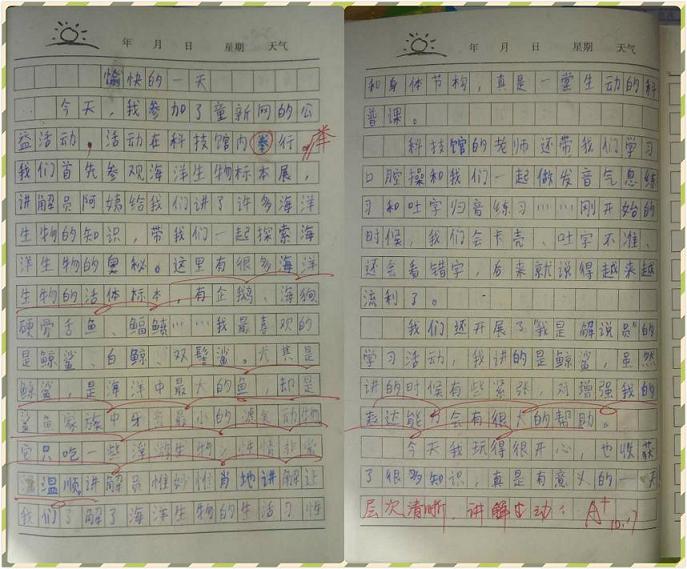 年 月 日 星期 天气
愉快的一天
今天，我参加了童新网的公
益活动，活动在科技馆内拳行。拳
我们首先参观海洋生物标本展，
讲解员阿姨给我们讲了许多海洋
生物的知识，带我们一起探索海
洋生物的奥秘。这里有很多海洋
生物的活体标本，有企鹅、海狗
硬骨舌鱼、蝠鲼……我最喜欢的
是鲸鲨、白鲸、双髻鲨。尤其是
鲸鲨，是海洋中最大的鱼，却是
鲨鱼家族中牙齿最小的滤食动物
它只吃一些浮游生物，性情非常
温顺讲解员惟妙惟肖地讲解让
我们了解了海洋生物的生活习性
年 月 日 星期 天气
和身体节构，真是一堂生动的科
普课。
科技馆的老师还带我们学习
口腔操和我们一起做发音气息练
习和吐字归音练习……刚开始的
时候，我们会卡壳、吐字不准、
还会看错字，后来就说得越来越
流利了。
我们还开展了“我是解说员”的
学习活动，我讲的是鲸鲨，虽然
讲的时候有些紧张，对增强我的
表达能力会有很大的帮助。
今天我玩得很开心，也收获
了很多知识，真是有意义的一天
层次清晰，讲解生动！A+ 10.17